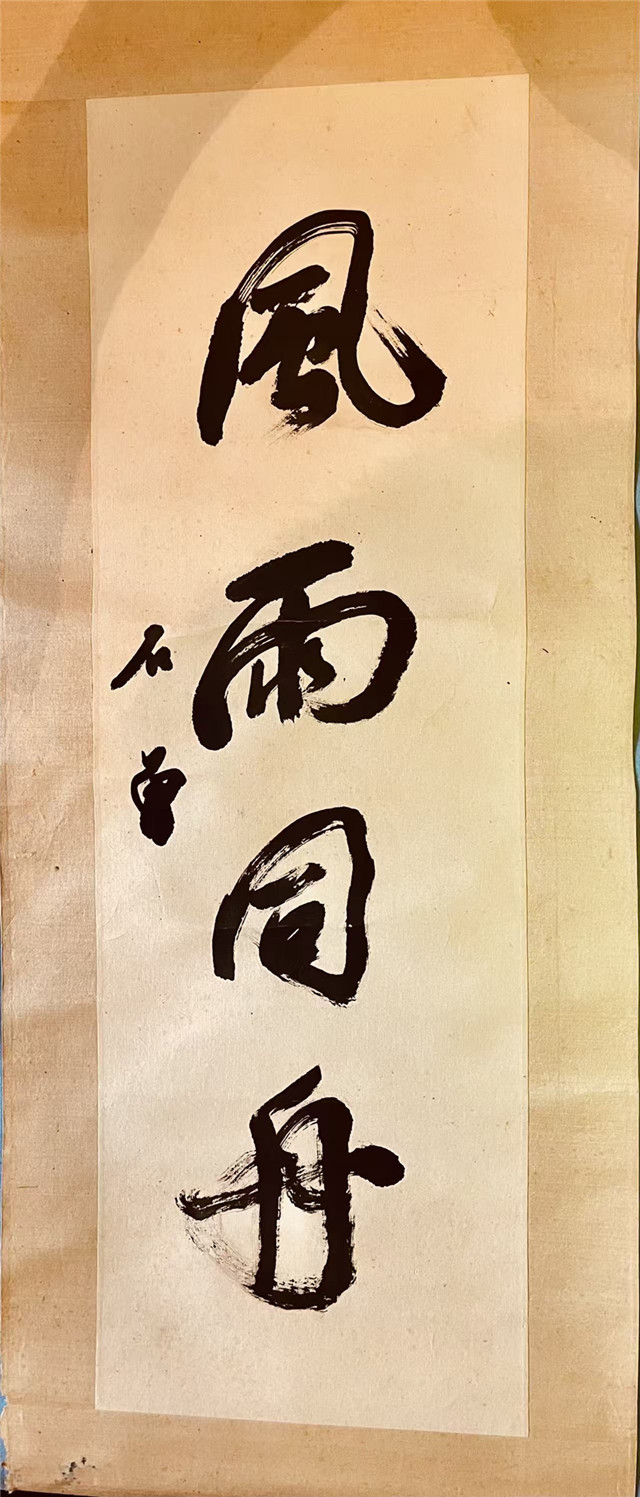 風雨同舟
石